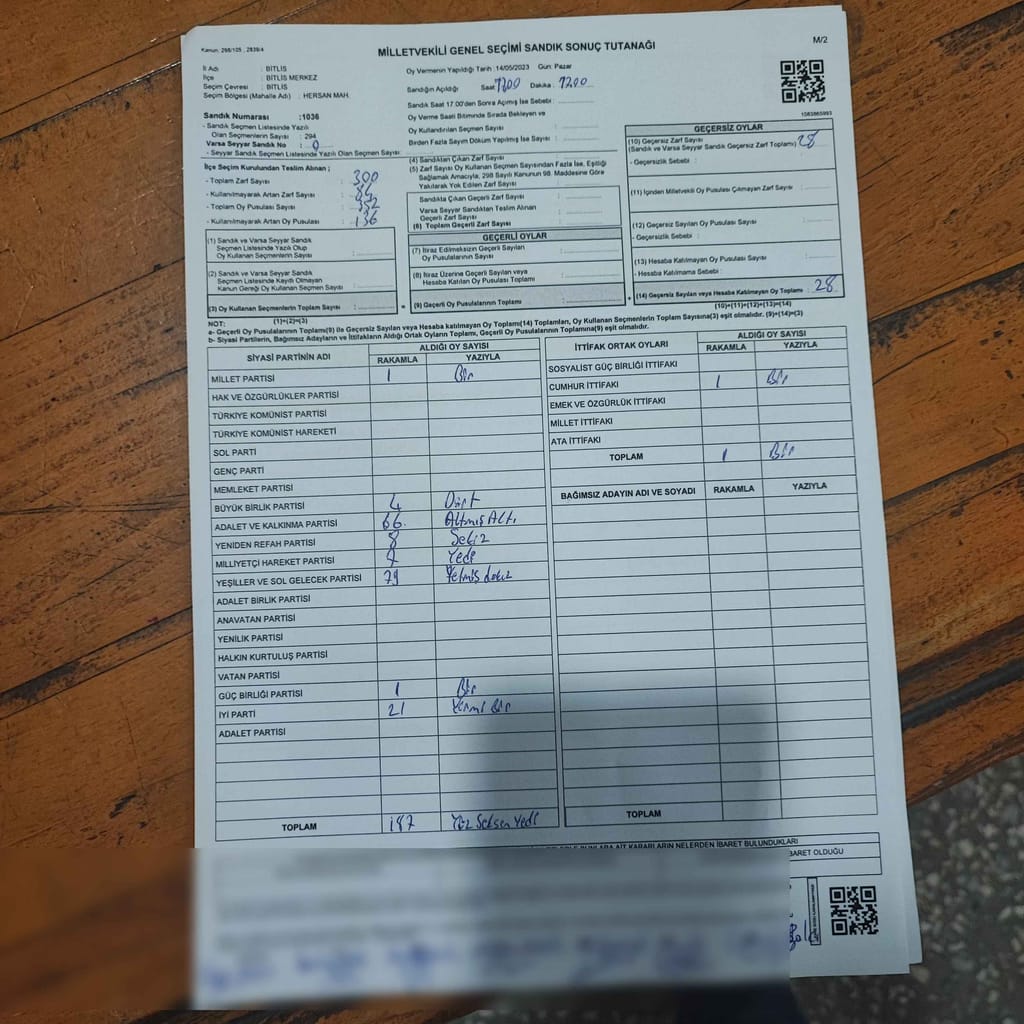 Kanun: 298/105 , 2839/4
MİLLETVEKİLİ GENEL SEÇİMİ SANDIK SONUÇ TUTANAĞI
M/2
İl Adı : BİTLİS
İlçe : BİTLİS MERKEZ
Seçim Çevresi : BİTLİS
Seçim Bölgesi (Mahalle Adı) : HERSAN MAH.
Oy Vermenin Yapıldığı Tarih :14/05/2023 Gün: Pazar
Sandığın Açıldığı Saat Dakika :
Sandık Saat 17.00'den Sonra Açımış İse Sebebi :
Oy Verme Saati Bitiminde Sırada Bekleyen ve
Oy Kullandırılan Seçmen Sayısı :
Birden Fazla Sayım Döküm Yapılmış İse Sayısı :
Sandık Numarası :1036
- Sandık Seçmen Listesinde Yazılı
Olan Seçmenlerin Sayısı : 294
Varsa Seyyar Sandık No : 0
- Seyyar Sandık Seçmen Listesinde Yazılı Olan Seçmen Sayısı :
İlçe Seçim Kurulundan Teslim Alınan ;
- Toplam Zarf Sayısı : 300
- Kullanılmayarak Artan Zarf Sayısı :
- Toplam Oy Pusulası Sayısı :
- Kullanılmayarak Artan Oy Pusulası : 136
(1) Sandık ve Varsa Seyyar Sandık
Seçmen Listesinde Yazılı Olup
Oy Kullanan Seçmenlerin Sayısı :
(2) Sandık ve Varsa Seyyar Sandık
Seçmen Listesinde Kayıtlı Olmayan
Kanun Gereği Oy Kullanan Seçmen Sayısı :
(3) Oy Kullanan Seçmenlerin Toplam Sayısı :
(1)+(2)=(3)
(4) Sandıktan Çıkan Zarf Sayısı
(5) Zarf Sayısı Oy Kullanan Seçmen Sayısından Fazla İse, Eşitliği
Sağlamak Amacıyla, 298 Sayılı Kanunun 98. Maddesine Göre
Yakılarak Yok Edilen Zarf Sayısı :
Sandıkta Çıkan Geçerli Zarf Sayısı :
Varsa Seyyar Sandıktan Teslim Alınan
Geçerli Zarf Sayısı :
(6) Toplam Geçerli Zarf Sayısı :
GEÇERLİ OYLAR
(7) İtiraz Edilmeksizin Geçerli Sayılan
Oy Pusulasının Sayısı :
(8) İtiraz Üzerine Geçerli Sayılan veya
Hesaba Katılan Oy Pusulası Toplamı :
= (9) Geçerli Oy Pusulalarının Toplamı :
1083865993
GEÇERSİZ OYLAR
(10) Geçersiz Zarf Sayısı
(Sandık ve Varsa Seyyar Sandık Geçersiz Zarf Toplamı) : 28
- Geçersizlik Sebebi :
(11) İçinden Milletvekili Oy Pusulası Çıkmayan Zarf Sayısı :
(12) Geçersiz Sayılan Oy Pusulası Sayısı :
- Geçersizlik Sebebi :
(13) Hesaba Katılmayan Oy Pusulası Sayısı :
- Hesaba Katılmama Sebebi :
+ (14) Geçersiz Sayılan veya Hesaba Katılmayan Oy Toplamı : 28
(10)+(11)+(12)+(13)=(14)
NOT:
a- Geçerli Oy Pusulalarının Toplamı(9) ile Geçersiz Sayılan veya Hesaba katılmayan Oy Toplamı(14) Toplamları, Oy Kullanan Seçmenlerin Toplam Sayısına(3) eşit olmalıdır. (9)+(14)=(3)
b- Siyasi Partilerin, Bağımsız Adayların ve İttifakların Aldığı Ortak Oyların Toplamı, Geçerli Oy Pusulalarının Toplamına(9) eşit olmalıdır.
SİYASİ PARTİNİN ADI ALDIĞI OY SAYISI
RAKAMLA YAZIYLA
MİLLET PARTİSİ 1 Bir
HAK VE ÖZGÜRLÜKLER PARTİSİ
TÜRKİYE KOMÜNİST PARTİSİ
TÜRKİYE KOMÜNİST HAREKETİ
SOL PARTİ
GENÇ PARTİ
MEMLEKET PARTİSİ
BÜYÜK BİRLİK PARTİSİ 4 Dört
ADALET VE KALKINMA PARTİSİ 66 Altmış Altı
YENİDEN REFAH PARTİSİ 8 Sekiz
MİLLİYETÇİ HAREKET PARTİSİ 7 Yedi
YEŞİLLER VE SOL GELECEK PARTİSİ 79 Yetmiş dokuz
ADALET BİRLİK PARTİSİ
ANAVATAN PARTİSİ
YENİLİK PARTİSİ
HALKIN KURTULUŞ PARTİSİ
VATAN PARTİSİ
GÜÇ BİRLİĞİ PARTİSİ 1 Bir
İYİ PARTİ 21 Yirmi Bir
ADALET PARTİSİ
TOPLAM 187 Yüz Seksen Yedi
İTTİFAK ORTAK OYLARI ALDIĞI OY SAYISI
RAKAMLA YAZIYLA
SOSYALİST GÜÇ BİRLİĞİ İTTİFAKI
CUMHUR İTTİFAKI 1 Bir
EMEK VE ÖZGÜRLÜK İTTİFAKI
MİLLET İTTİFAKI
ATA İTTİFAKI
TOPLAM 1 Bir
BAĞIMSIZ ADAYIN ADI VE SOYADI RAKAMLA YAZIYLA
TOPLAM
BUNLARA AİT KARARLARIN NELERDEN İBARET BULUNDUKLARI
İBARET OLDUĞU